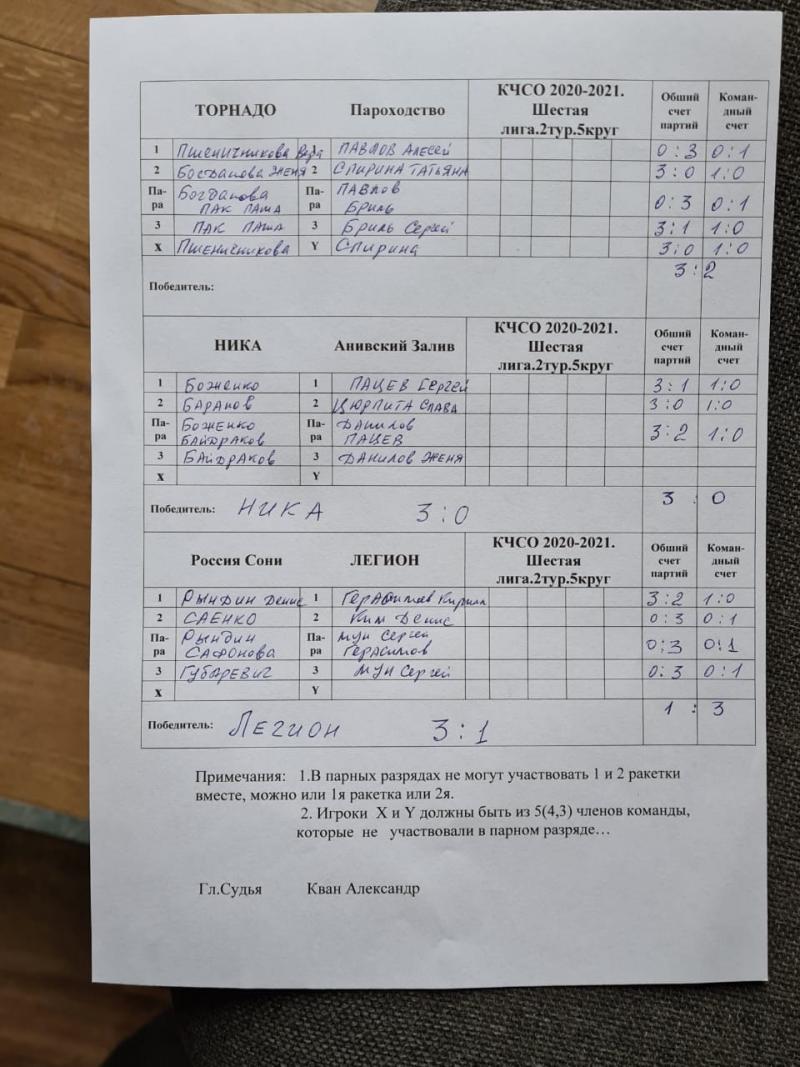 ТОРНАДО Пароходство КЧСО 2020-2021. Шестая лига.2тур.5круг Общий счет партий Коман-дный счет
1 Пшеничникова Вера 1 ПАВЛОВ Алесей 0:3 0:1
2 Богданова Женя 2 СПИРИНА ТАТЬЯНА 3:0 1:0
Па-ра Богданова Па-ра ПАВЛОВ 0:3 0:1
ПАК ПАША БРИЛЬ
3 ПАК ПАША 3 БРИЛЬ Сергей 3:1 1:0
X Пшеничникова Y Спирина 3:0 1:0
Победитель: 3:2
НИКА Анивский Залив КЧСО 2020-2021. Шестая лига.2тур.5круг Общий счет партий Коман-дный счет
1 Боженко 1 ПАЦЕВ Сергей 3:1 1:0
2 БАРАНОВ 2 ЦЮРПИТА СЛАВА 3:0 1:0
Па-ра Боженко Па-ра Данилов 3:2 1:0
БАЙДРАКОВ ПАЦЕВ
3 БАЙДРАКОВ 3 ДАНИЛОВ ЖЕНЯ
X Y
Победитель: НИКА 3:0 3:0
Россия Сони ЛЕГИОН КЧСО 2020-2021. Шестая лига.2тур.5круг Общий счет партий Коман-дный счет
1 Рындин Денис 1 Герасимов Кирилл 3:2 1:0
2 САЕНКО 2 Ким Денис 0:3 0:1
Па-ра Рындин Па-ра Мун Сергей 0:3 0:1
САФОНОВА Герасимов
3 ГУБАРЕВИЧ 3 Мун Сергей 0:3 0:1
X Y
Победитель: Легион 3:1 1:3
Примечания: 1.В парных разрядах не могут участвовать 1 и 2 ракетки
вместе, можно или 1я ракетка или 2я.
2. Игроки X и Y должны быть из 5(4,3) членов команды,
которые не участвовали в парном разряде…
Гл.Судья Кван Александр